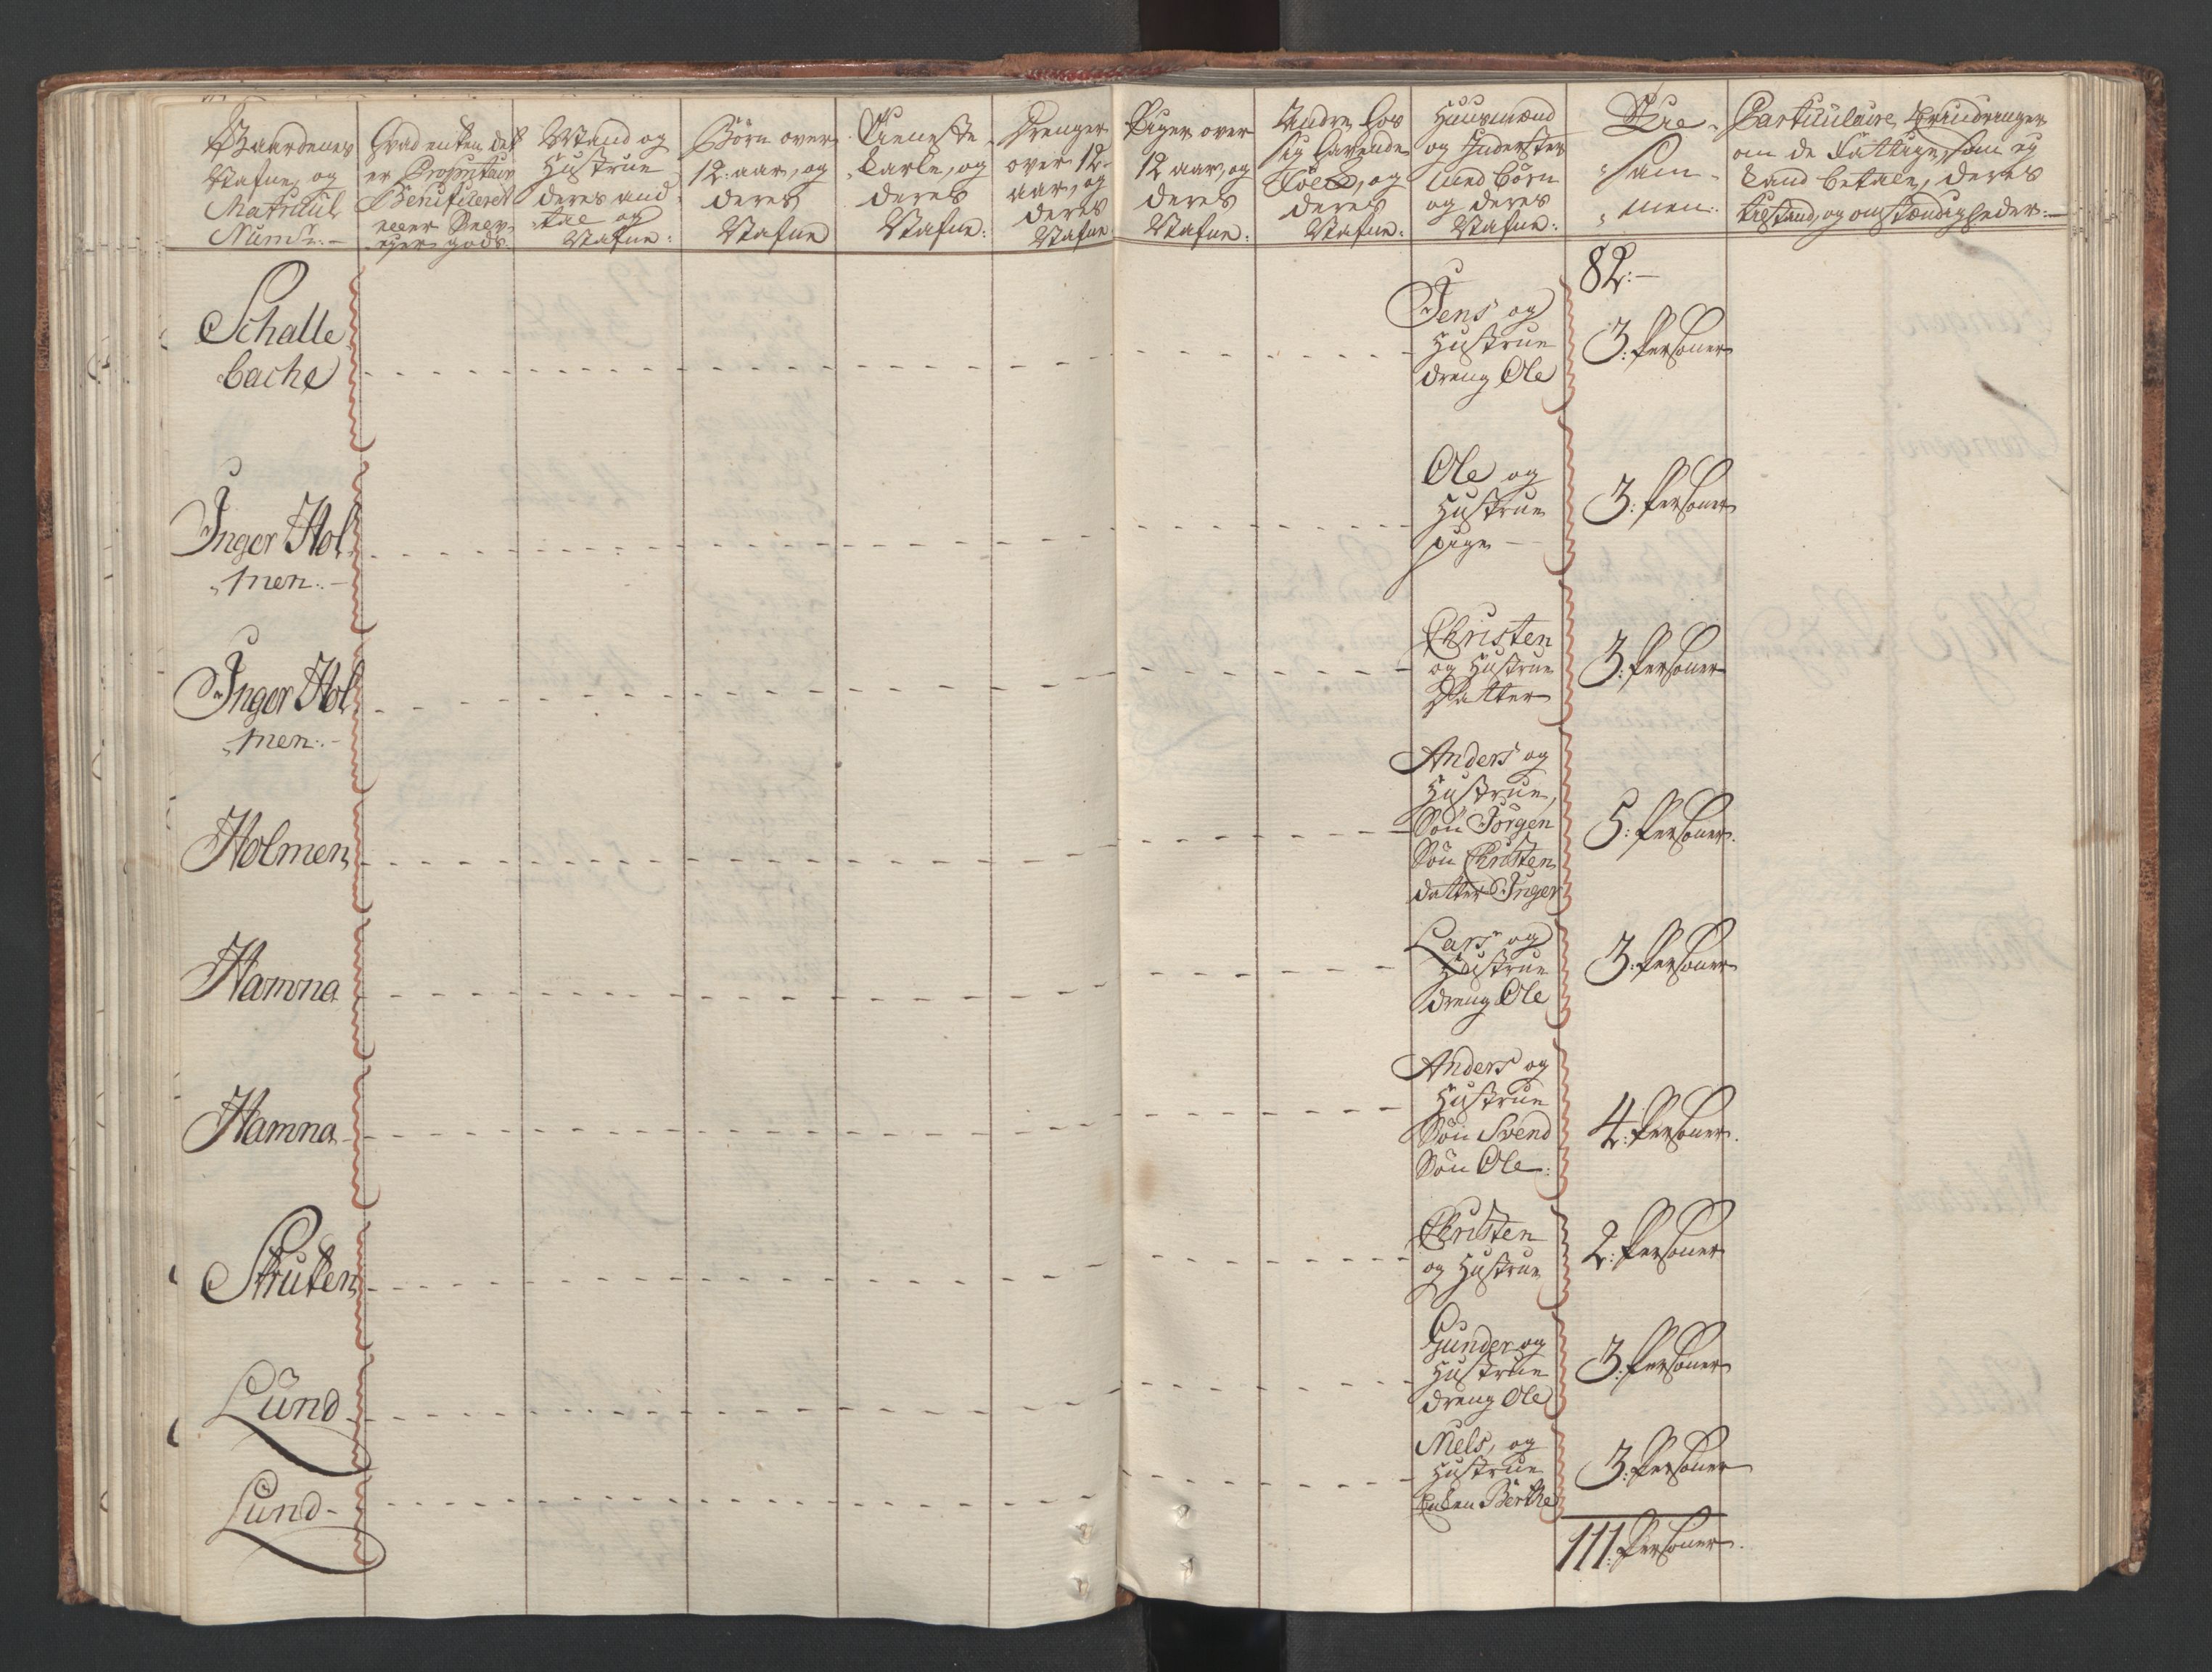 Gaardenes
Nafne, og
Matricul
Num:r:
Hvad enten det
er Proprietair
Beneficeret
eller Selv-
eyer gods
Mand og
Hustrue
deres And-
tal og
Nafne:
Børn over
12 aar, og
deres
Nafne
Tieneste-
Karle, og
deres
Nafne:
Drenger
over 12
aar, og
deres
Nafne
Piger over
12 aar, og
deres
Nafne:
Andre hos
sig havende
Folck, og
deres
Nafne:
Huusmænd
og Inderster
med børn
og deres
Nafne:
Til-
sam-
men:
Particulaire Erindringer
om de Fattige, som ey
kand betale, deres
tilstand, og omstændigheder:
82:
Schalle
bache
Jens og
Hustrue
dreng Ole
3: Personer
Inger Hol-
men:
Ole og
Hustrue
pige
3: Personer
Inger Hol
men:
Christen
og Hustrue
Datter
3: Personer
Holmen
Anders og
Hustrue,
Søn Jørgen
Søn Christen
datter Inger
5: Personer.
Hamna
Lars og
Hustrue
dreng Ole
3: Personer
Hamna
Anders og
Hustrue
Søn Svend
Søn Ole:
4: Personer.
Struken
Christen
og Hustrue
2: Personer
Lund
Gunder og
Hustrue
dreng Ole
3: Personer
Lund
Niels, og
Hustrue
Enken Berthe
3: Personer
111: Personer.